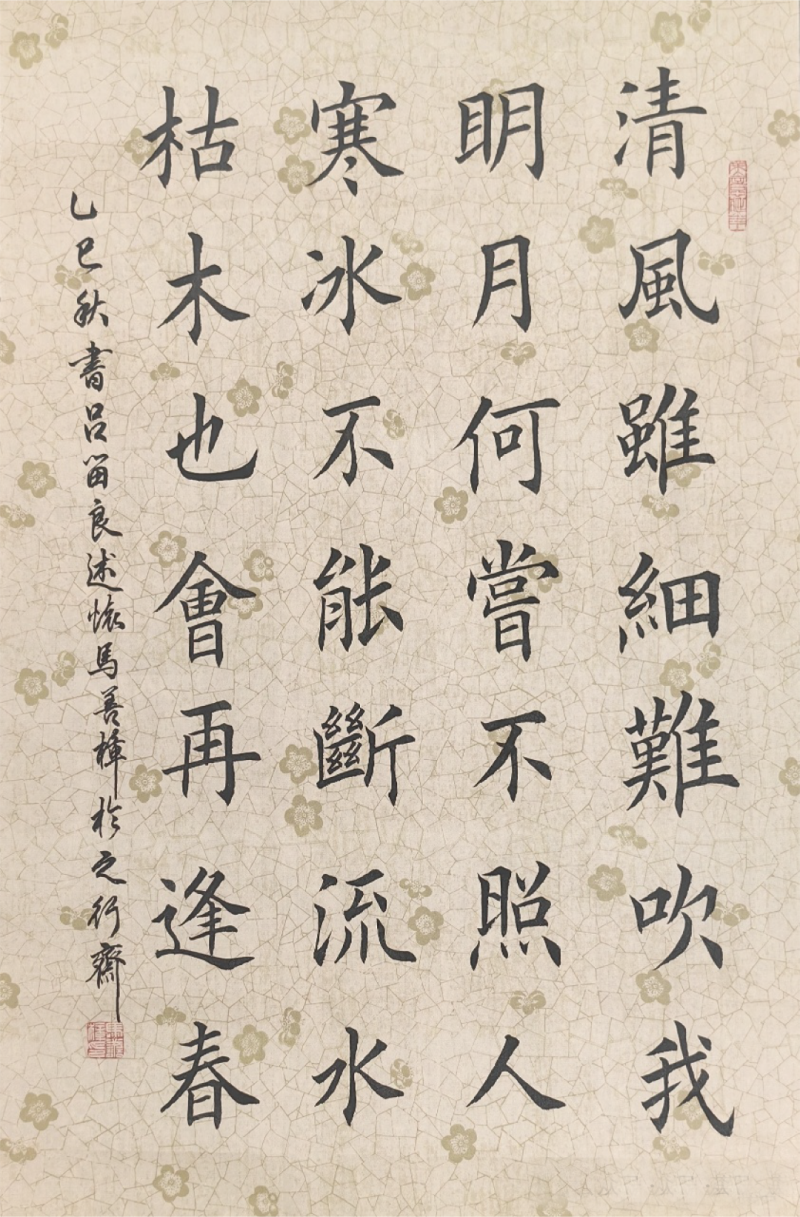 清風雖細難吹我
明月何嘗不照人
寒冰不能斷流水
枯木也會再逢春
乙巳秋書呂留良述懷馬善樟於之行齋